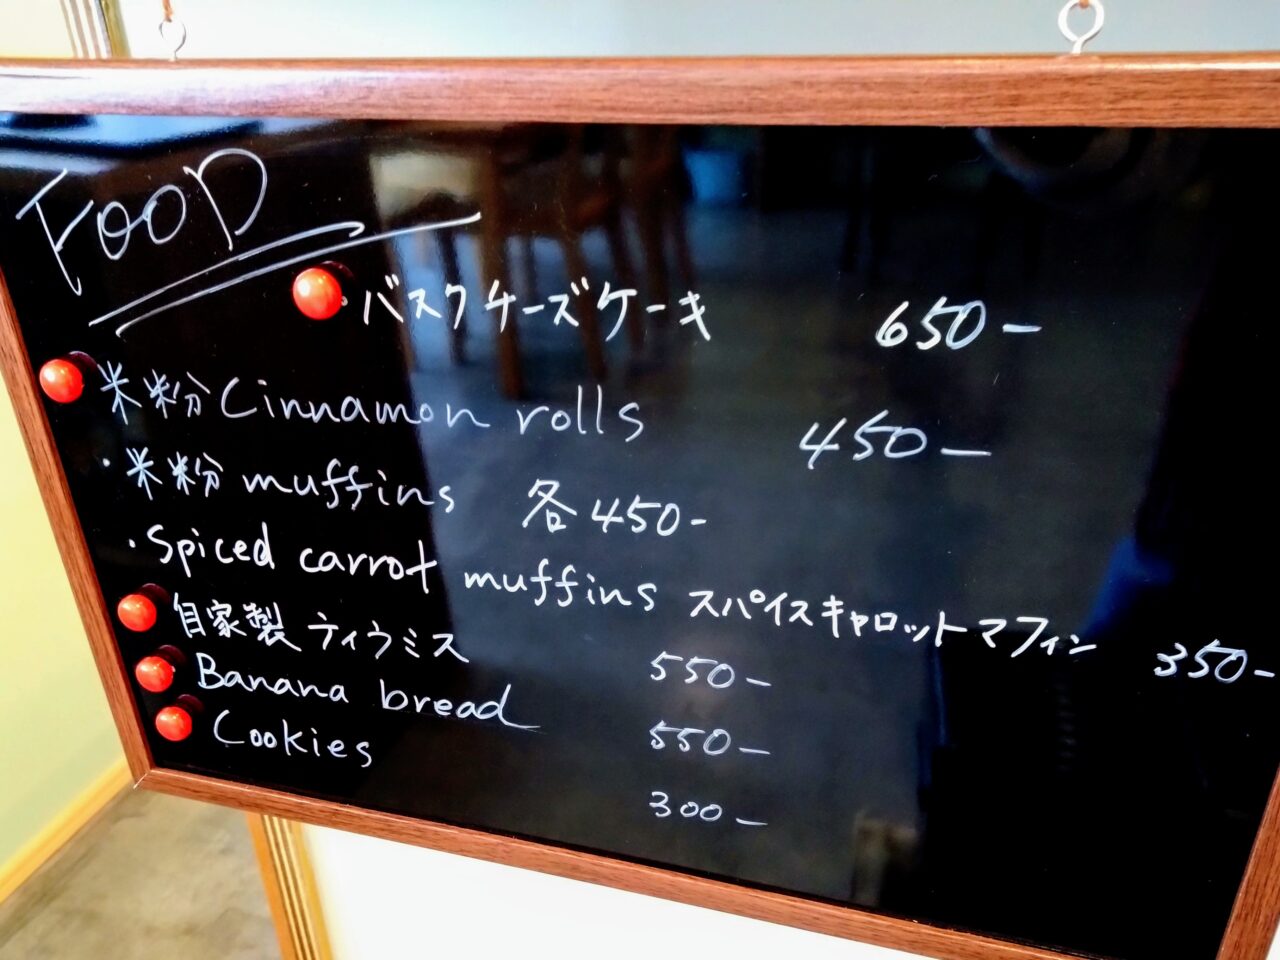 FOOD
バスクチーズケーキ 650-
米粉Cinnamon rolls 450-
・米粉 muffins 各450-
・Spiced carrot muffins スパイスキャロットマフィン 350-
自家製ティラミス 550-
Banana bread 550-
Cookies 300-